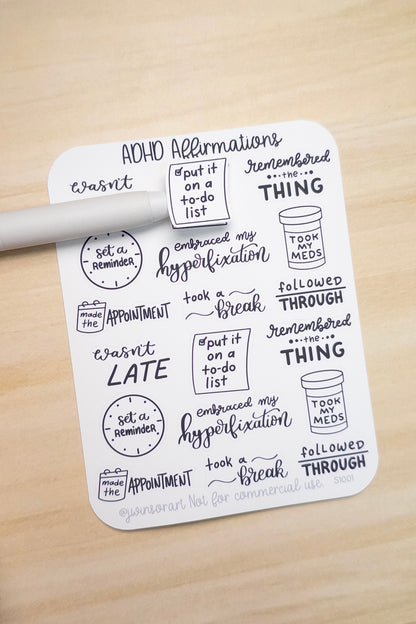 ADHD Affirmations
wasn't
put it
on a
to-do
list
remembered
the
THING
set a
REMINDER
embraced my
hyperfixation
TOOK
MY
MEDS
made
the
APPOINTMENT
took a
Break
followed
THROUGH
wasn't
LATE
put it
on a
to-do
list
remembered
the
THING
set a
REMINDER
embraced my
hyperfixation
TOOK
MY
MEDS
made
the
APPOINTMENT
took a
Break
followed
THROUGH
@jwinsorart Not for commercial use. S1001